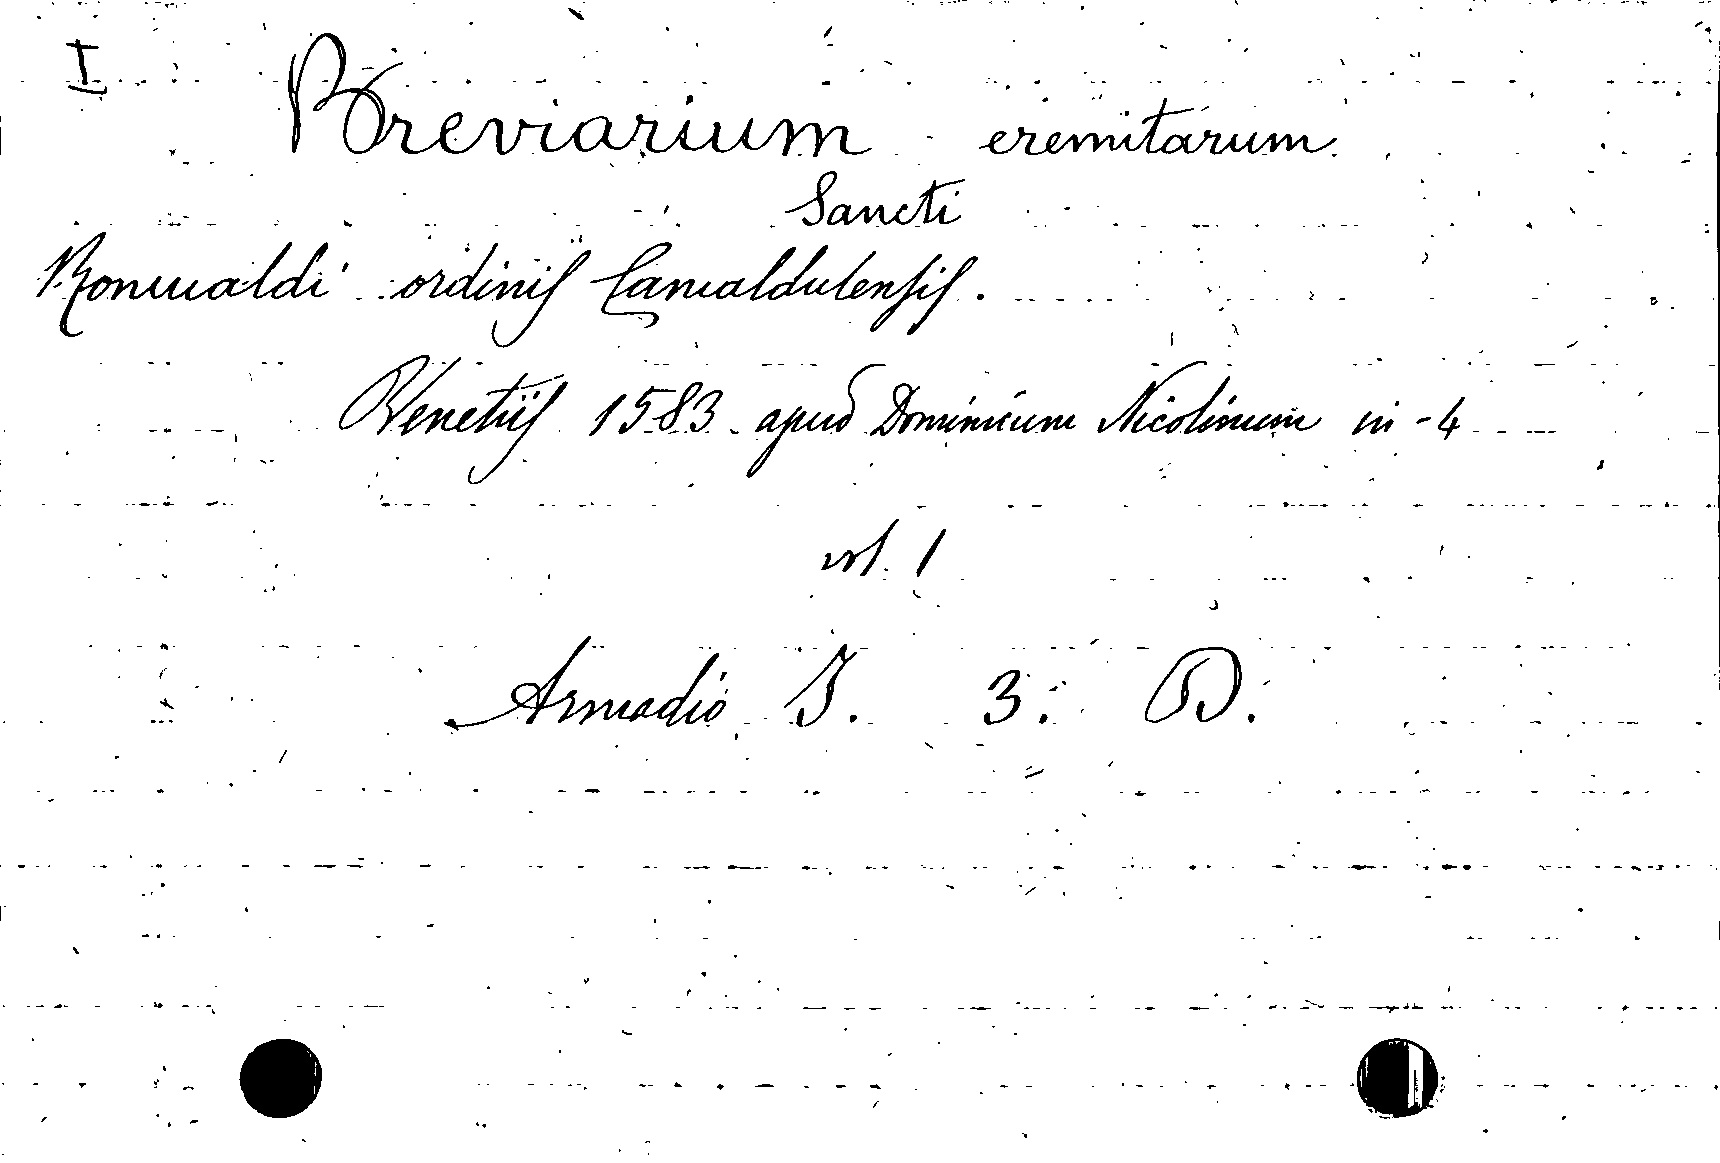 I
Breviarium eremitarum
Sancti
Romualdi ordinis Camaldulensis.
Venetiis 1583 apud Dominicum Nicolinum in-4
vol. 1
Armadio I. 3. D.